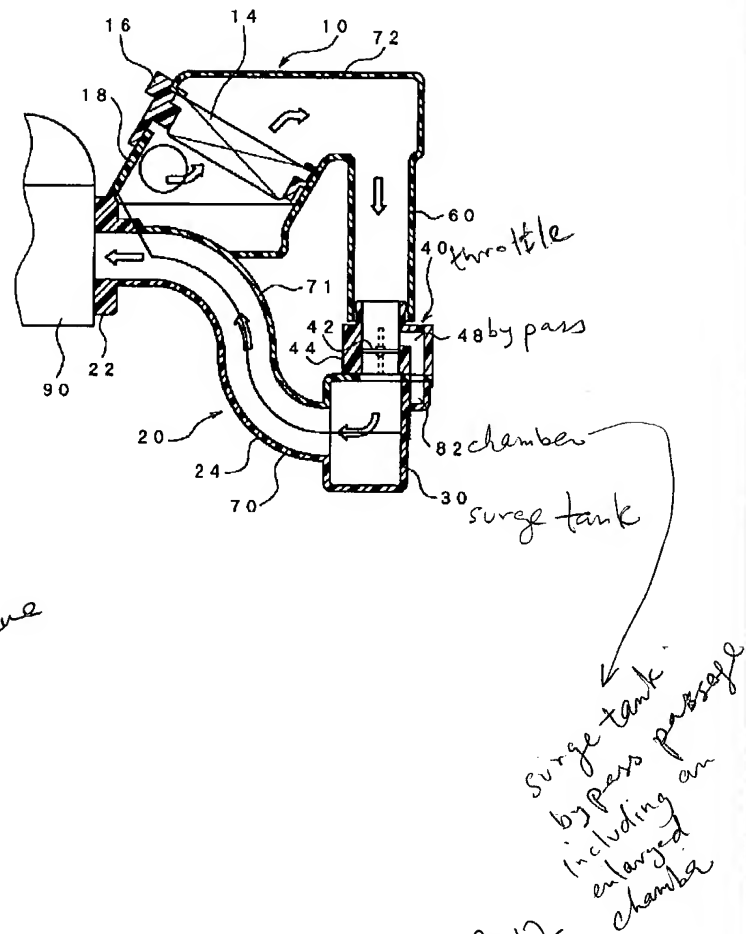 16
14
10
72
18
60
40 throttle
71
42
44
48 by pass
22
90
20
82 chamber
24
70
30
surge tank
surge tank
by pass passage
including an
enlarged
chamber